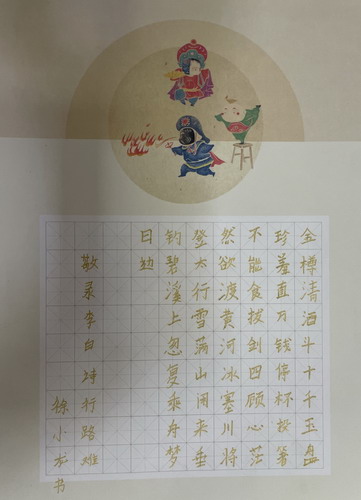 金樽清酒斗十千玉盘
珍羞直万钱停杯投箸
不能食拔剑四顾心茫
然欲渡黄河冰塞川将
登太行雪满山闲来垂
钓碧溪上忽复乘舟梦
日边
敬录李白诗行路难
徐小书